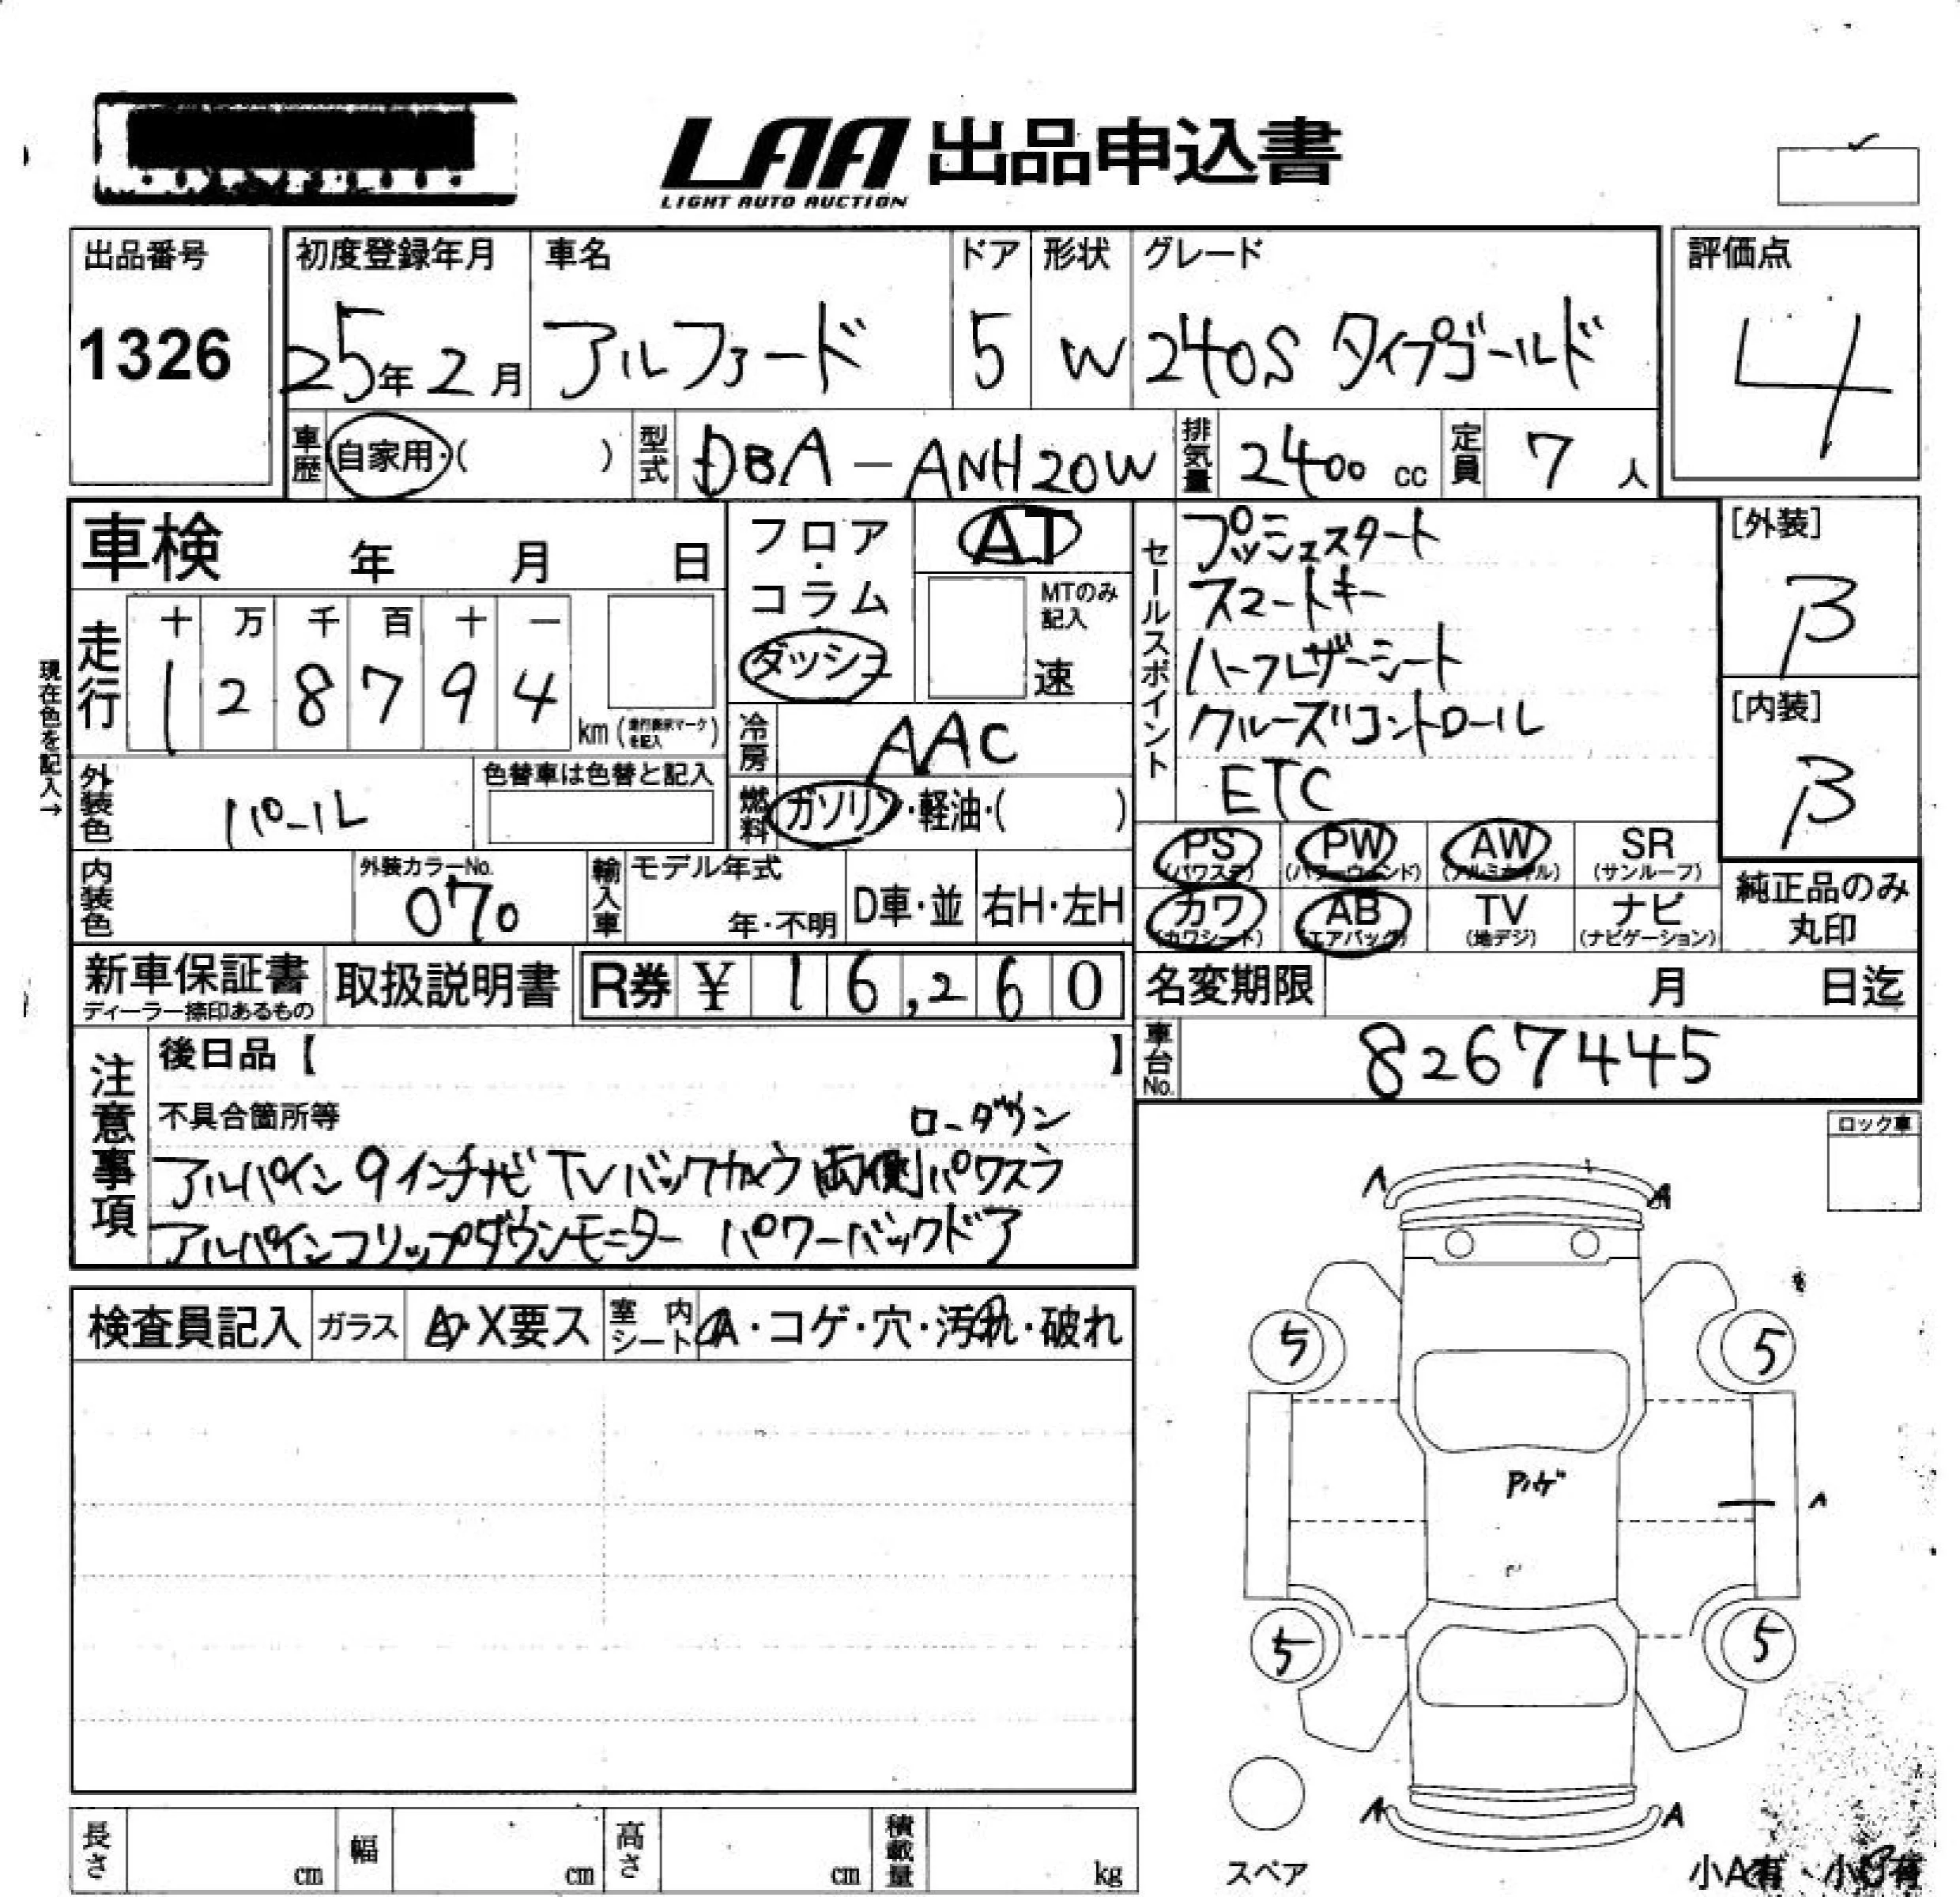 LAA 出品申込書
LIGHT AUTO AUCTION
出品番号
1326
初度登録年月
25年2月
車名
アルファード
ドア
5
形状
W
グレード
240S タイプゴールド
評価点
4
車歴
自家用・( )
型式
DBA-ANH20W
排気量
2400 cc
定員
7 人
車検 年 月 日
走行
十 万 千 百 十 一
1 2 8 7 9 4
km (走行表示マークを記入)
現在色を記入→
外装色
パール
色替車は色替と記入
フロア・コラム・ダッシュ
AT
MTのみ記入
速
冷房
AAC
燃料
ガソリン・軽油・( )
セールスポイント
プッシュスタート
スマートキー
ハーフレザーシート
クルーズコントロール
ETC
[外装]
B
[内装]
B
内装色
外装カラーNo.
070
輸入車
モデル年式
年・不明
D車・並
右H・左H
PS (パワステ)
PW (パワーウィンド)
AW (アルミホイル)
SR (サンルーフ)
カワ (カワシート)
AB (エアバッグ)
TV (地デジ)
ナビ (ナビゲーション)
純正品のみ丸印
新車保証書
ディーラー捺印あるもの
取扱説明書
R券 ¥ 16,260
名変期限 月 日迄
車台No.
8267445
注意事項
後日品【 】
不具合箇所等
ローダウン
アルパイン9インチナビ TV バックカメラ 両側パワスラ
アルパインフリップダウンモニター パワーバックドア
ロック車
検査員記入
ガラス
A・X要ス
室内シート
A・コゲ・穴・汚れ・破れ
A
A
5
5
ハゲ
A
5
5
A
A
スペア
小A有・小U有
長さ cm
幅 cm
高さ cm
積載量 kg